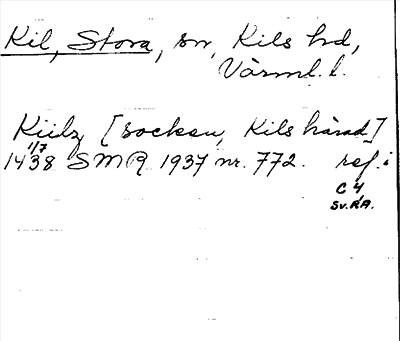 Kil, Stora, sn, Kils hd,
Värml. l.
Kiilz [socken, Kils härad]
1438 1/7 SMR 1937 nr. 772. ref. i
C 4
Sv.RA.